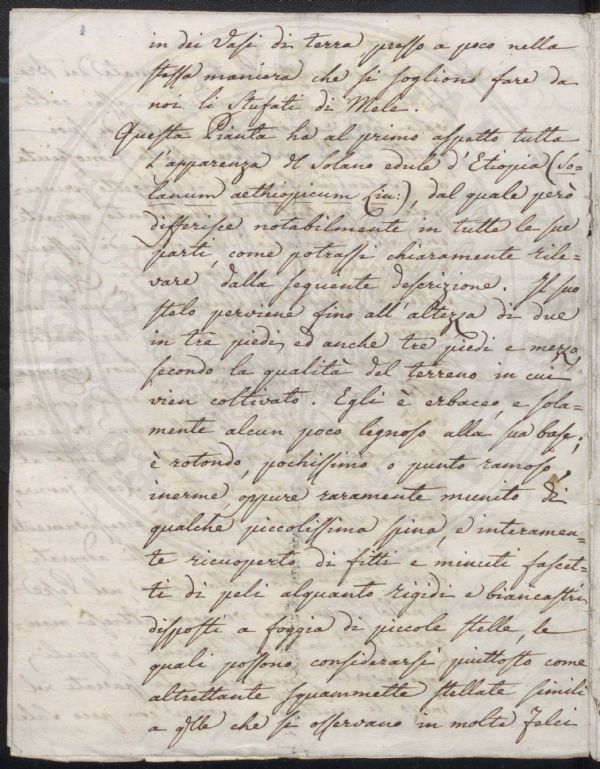 in dei Vasi di terra presso a poco nella
stessa maniera che si sogliono fare da
noi li Stufati di Mele.
Questa Pianta ha al primo aspetto tutta
l'apparenza del Solano edule d'Etiopia (So-
lanum aethiopicum Lin:), dal quale però
differisce notabilmente in tutte le sue
parti, come potrassi chiaramente rile-
vare dalla seguente descrizione. Il suo
stelo perviene fino all'altezza di due
in trè piedi, ed anche tre piedi e mezzo,
secondo la qualità del terreno in cui
vien coltivato. Egli è erbaceo, e sola-
mente alcun poco legnoso alla sua base;
è rotondo, pochissimo o punto ramoso,
inerme, oppure raramente munito di
qualche piccolissima spina, e interamen-
te ricuoperto di fitti e minuti fascet-
ti di peli alquanto rigidi e biancastri
disposti a foggia di piccole stelle, le
quali possono considerarsi piuttosto come
altrettante squammette stellate simili
a qlle che si osservano in molte Felci